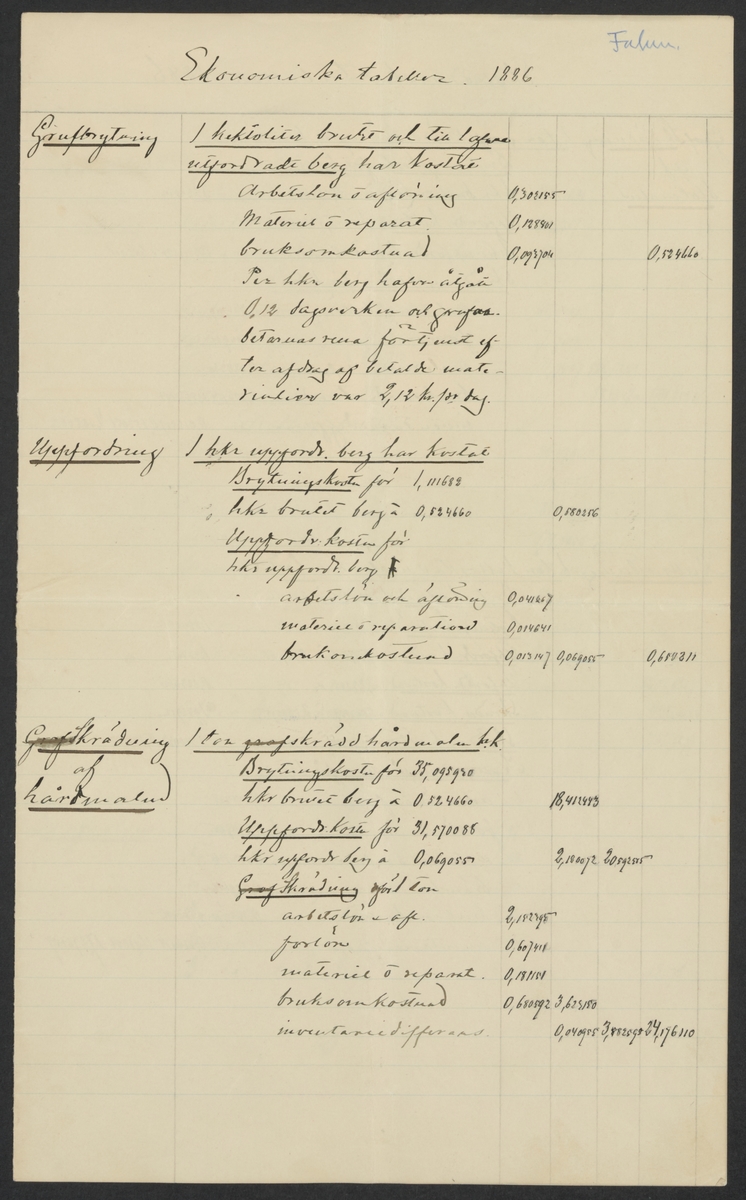 Falun.
Ekonomiska tabeller. 1886
Grufbrytning
1 hektoliter brutet och till
utfordradt berg har kostat
Arbetslön o aflöning 0,302155
Materiel o reparat. 0,128401
bruksomkostnad 0,093704 0,524660
Per hkr berg hafva åtgått
0,12 dagsverken och grufar-
betarnas rena förtjenst ef-
ter afdrag af betalde mate-
rialier var 2,12 kr. pr dag.
Uppfordring
1 hkr uppfordr. berg har kostat
Brytningskostn för 1,111682
hkr brutet berg à 0,524660 0,580256
Uppfordr. kostn för
hkr uppfordt. berg
arbetslön och aflöning 0,041267
materiel o reparationd 0,014641
brukomkostnad 0,013147 0,069055 0,649311
Skrädning
af
hårdmalm
1 ton skrädd hårdmalm h.k.
Brytningskostn för 35,095930
hkr brutet berg à 0,524660 18,412443
Uppfordr. kostn för 31,570088
hkr uppfordr berg à 0,069055 2,180072 20,592515
Skrädning för 1 ton
arbetslön o afl. 2,152395
forlön 0,607418
materiel o reparat. 0,181151
bruksomkostnad 0,680592 3,623180
inventariedifferans. 0,040955 24,176110